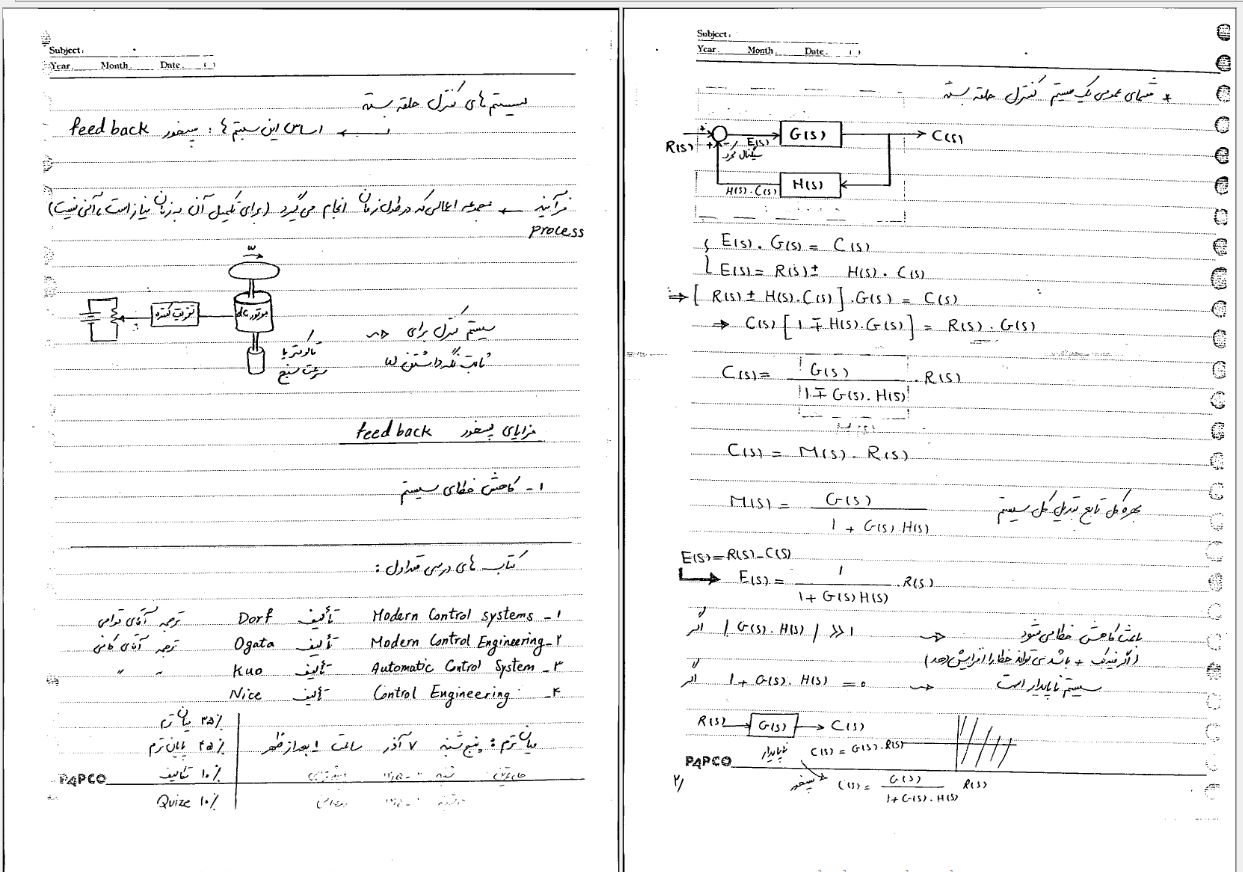 Subject:
Year. Month. Date. ( )
سیستم های کنترل حلقه بسته
اساس این سیستم ها: پسخورد feedback
فرآیند ← مجموعه اعمالی که در طول زمان انجام می گیرد (برای تکمیل آن به زمان نیاز است، آنی نیست)
process
ω
تقویت کننده
موتور dc
تاکومتر یا
سرعت سنج
سیستم کنترل برای
ثابت نگه داشتن ω
مزایای پسخورد feedback
۱- کاهش خطای سیستم
کتاب های درسی متداول:
۱- Modern Control systems تألیف Dorf ترجمه آقای
۲- Modern Control Engineering تألیف Ogata ترجمه آقای
۳- Automatic Control System تألیف Kuo " "
۴- Control Engineering تألیف Nice
٪۲۵ میان ترم
پایان ترم
٪۱۰ تکالیف
Quize ۱۰٪
میان ترم: پنج شنبه ۷ آذر ساعت ۱ بعد از ظهر
PAPCO
Subject:
Year. Month. Date. ( )
* شمای عمومی یک سیستم کنترل حلقه بسته
R(s) + ± E(s) G(s) C(s)
سیگنال
H(s).C(s) H(s)
E(s).G(s) = C(s)
E(s) = R(s) ± H(s).C(s)
⇒ [R(s) ± H(s).C(s)].G(s) = C(s)
⇒ C(s)[1 ∓ H(s).G(s)] = R(s).G(s)
C(s) = G(s) / (1 ∓ G(s).H(s)) . R(s)
C(s) = M(s).R(s)
M(s) = G(s) / (1 + G(s)H(s)) بهره کل تابع تبدیل کل سیستم
E(s) = R(s) - C(s)
E(s) = 1 / (1 + G(s)H(s)) . R(s)
اگر |G(s).H(s)| >> 1 باعث کاهش خطا می شود
(اگر فیدبک + باشد می تواند خطا را افزایش دهد)
اگر 1 + G(s).H(s) = 0 سیستم ناپایدار است
R(s) G(s) C(s)
ناپایدار C(s) = G(s).R(s)
PAPCO
پسخورد C(s) = G(s) / (1 + G(s).H(s)) R(s)
۲/